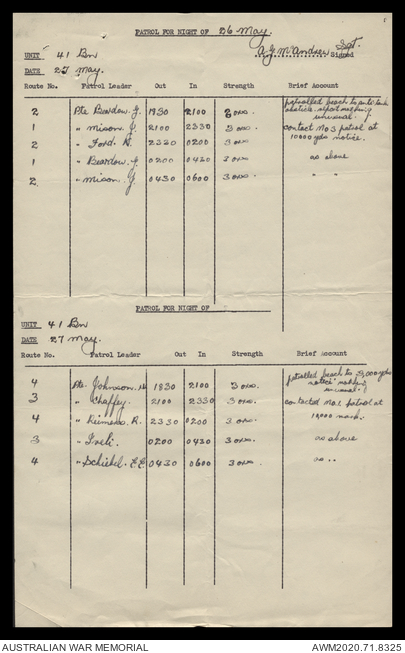 PATROL FOR NIGHT OF 26 May.
A.G. McAndrew Sgt.
Signed
UNIT 41 Bn
DATE 27 May.
Route No. Patrol Leader Out In Strength Brief Account
2 Pte Beardow. J. 1930 2100 3 ORs. patrolled beach to anti tank
obstacle. report nothing
unusual.
1 " Mison. J. 2100 2330 3 ORs. contact No 3 patrol at
10000 yds notice.
2 " Ford. 2330 0200 3 ORs
1 " Beardow. J. 0200 0430 3 ORs as above
2. " Mison. J. 0430 0600 3 ORs. " "
PATROL FOR NIGHT OF
UNIT 41 Bn
DATE 27 May.
Route No. Patrol Leader Out In Strength Brief Account
4 Pte. Johnson. 1830 2100 3 ORs. patrolled beach to yds
notice nothing
unusual.
3 " Chaffey. 2100 2330 3 ORs. contacted No 1 patrol at
10,000 mark.
4 " R. 2330 0200 3 ORs.
3 " 0200 0430 3 ORs. as above
4 " Schiebel. E.E 0430 0600 3 ORs. as "
AUSTRALIAN WAR MEMORIAL AWM2020.71.8325